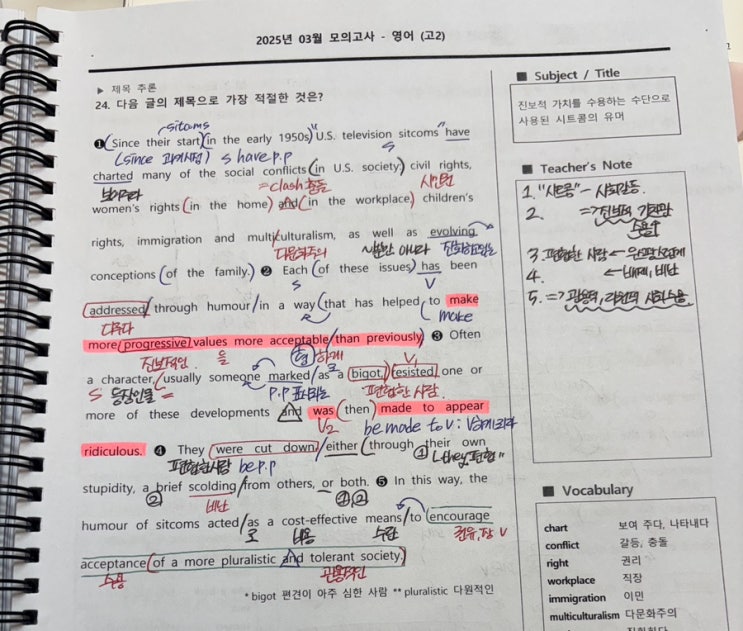 2025년 03월 모의고사 - 영어 (고2)
▶ 제목 추론
24. 다음 글의 제목으로 가장 적절한 것은?
sitcoms
❶ Since their start in the early 1950s U.S. television sitcoms have
(since 과거시점) S have p.p S
charted many of the social conflicts in U.S. society civil rights,
보여주다 =clash 충돌 시민권
women's rights in the home and in the workplace children's
rights, immigration and multiculturalism, as well as evolving
다문화주의 뿐만 아니라 진화하는
conceptions of the family. ❷ Each of these issues has been
S V
addressed through humour in a way that has helped to make
다루다 make
more progressive values more acceptable than previously ❸ Often
진보적인 을 형 하게
a character, usually someone marked as a bigot, resisted one or
S 등장인물 = P.P 표시되는 편협한 사람 V₁
more of these developments and was then made to appear
V₂ be made to V :
ridiculous. ❹ They were cut down either through their own
편협한 사람 be p.p ① "they 편협"
stupidity, a brief scolding from others, or both. ❺ In this way, the
② 비난 ①,②
humour of sitcoms acted as a cost-effective means to encourage
로 비용 수단 권유, 장 V
acceptance of a more pluralistic and tolerant society.
수용 관용적인
* bigot 편견이 아주 심한 사람 ** pluralistic 다원적인
■ Subject / Title
진보적 가치를 수용하는 수단으로
사용된 시트콤의 유머
■ Teacher's Note
1. "시트콤" - 사회갈등.
2. => 진보적 가치관
수용↑
3. 편협한 사람 ←
4. ← 배제, 비난
5. => 관용적, 다원적 사회수용.
■ Vocabulary
chart 보여 주다, 나타내다
conflict 갈등, 충돌
right 권리
workplace 직장
immigration 이민
multiculturalism 다문화주의